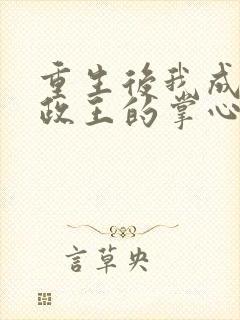 重生後我成
政王的掌心
言草央